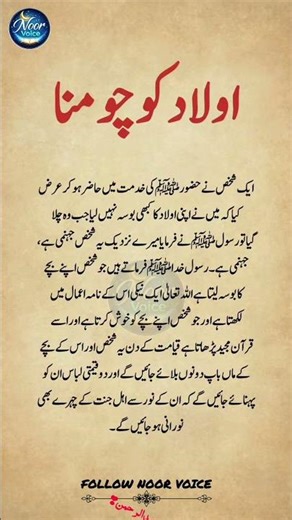 Noor
Voice
اولاد کو چومنا
ایک شخص نے حضور ﷺ کی خدمت میں حاضر ہو کر عرض
کیا کہ میں نے اپنی اولاد کا کبھی بوسہ نہیں لیا جب وہ چلا
گیا تو رسول ﷺ نے فرمایا میرے نزدیک یہ شخص جہنمی ہے،
جہنمی ہے۔ رسول خدا ﷺ فرماتے ہیں جو شخص اپنے بچے
کا بوسہ لیتا ہے اللہ تعالیٰ ایک نیکی اس کے نامہ اعمال میں
لکھتا ہے اور جو شخص اپنے بچے کو خوش کرتا ہے اور اسے
قرآن مجید پڑھاتا ہے قیامت کے دن یہ شخص اور اس کے بچے
کے ماں باپ دونوں بلائے جائیں گے اور دو قیمتی لباس ان کو
پہنائے جائیں گے کہ ان کے نور سے اہل جنت کے چہرے بھی
نورانی ہو جائیں گے۔
FOLLOW NOOR VOICE